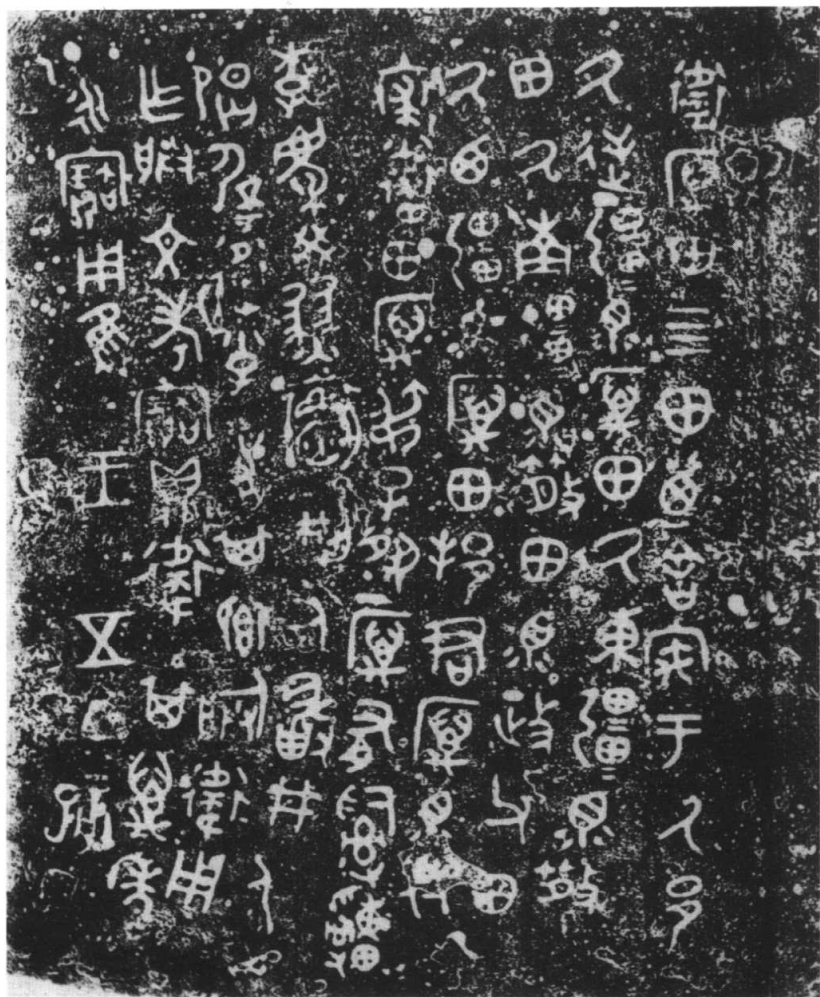 衛厲田四田乃舍寓于厥邑
厥逆疆眔厲田厥東疆眔散
田厥南疆眔散田眔政父田
厥西疆眔厲田邦君厲眔付
裘衛田厲叔子夙厲有司申季
慶癸豳襮荊人敢井人
偈屖衛小子者其饗朋衛用
作朕文考寶鼎衛其萬年
永寶用隹王五祀